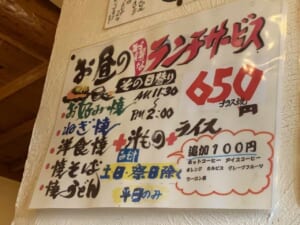 お昼の
ランチサービス
その日替り
AM.11:30
PM2:00
650円
お好み焼
ねぎ焼
洋食焼
焼そば
焼うどん
+汁もの+ライス
土日・祭日除く
平日のみ
追加100円
ホットコーヒー アイスコーヒー
オレンジ カルピス グレープフルーツ
ウーロン茶